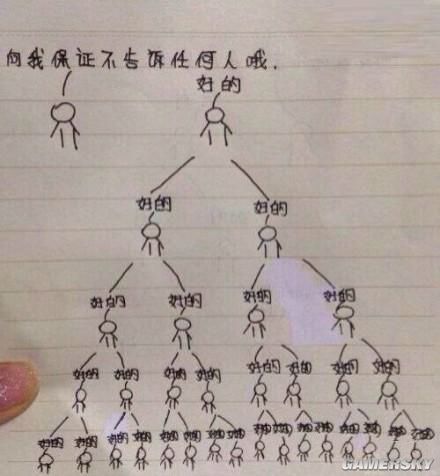 向我保证不告诉任何人哦.
好的
好的 好的
好的 好的 好的 好的
好的 好的 好的 好的 好的 好的 好的 好的
好的 好的 好的 好的 好的 好的 好的 好的
GAMERSKY